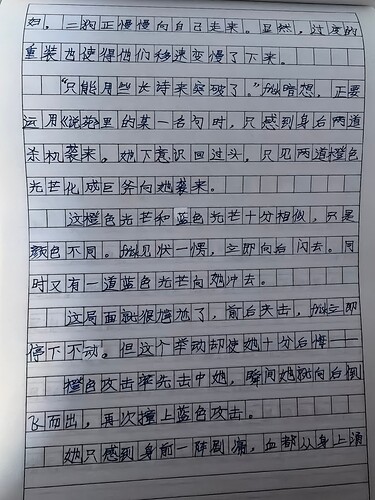 妇，二狗正慢慢向自己走来。显然，过度的
重装也使得他们移速变慢了下来。
“只能用些长诗来突破了。”fhl暗想，正要
运用《说苑》里的某一名句时，只感到身后两道
杀机袭来，她下意识回过头，只见两道橙色
光芒化成巨爷向她袭来。
这橙色光芒和蓝色光芒十分相似，只是
颜色不同。fhl见状一愣，立即向后闪去。同
时又有一道蓝色光芒向她冲去。
这局面就很尴尬了，前后夹击，fhl立即
停下不动。但这个举动却使她十分后悔——
橙色攻击率先击中她，瞬间她就向后倒
飞而出，再次撞上蓝色攻击。
她只感到身前一阵剧痛，血都从身上